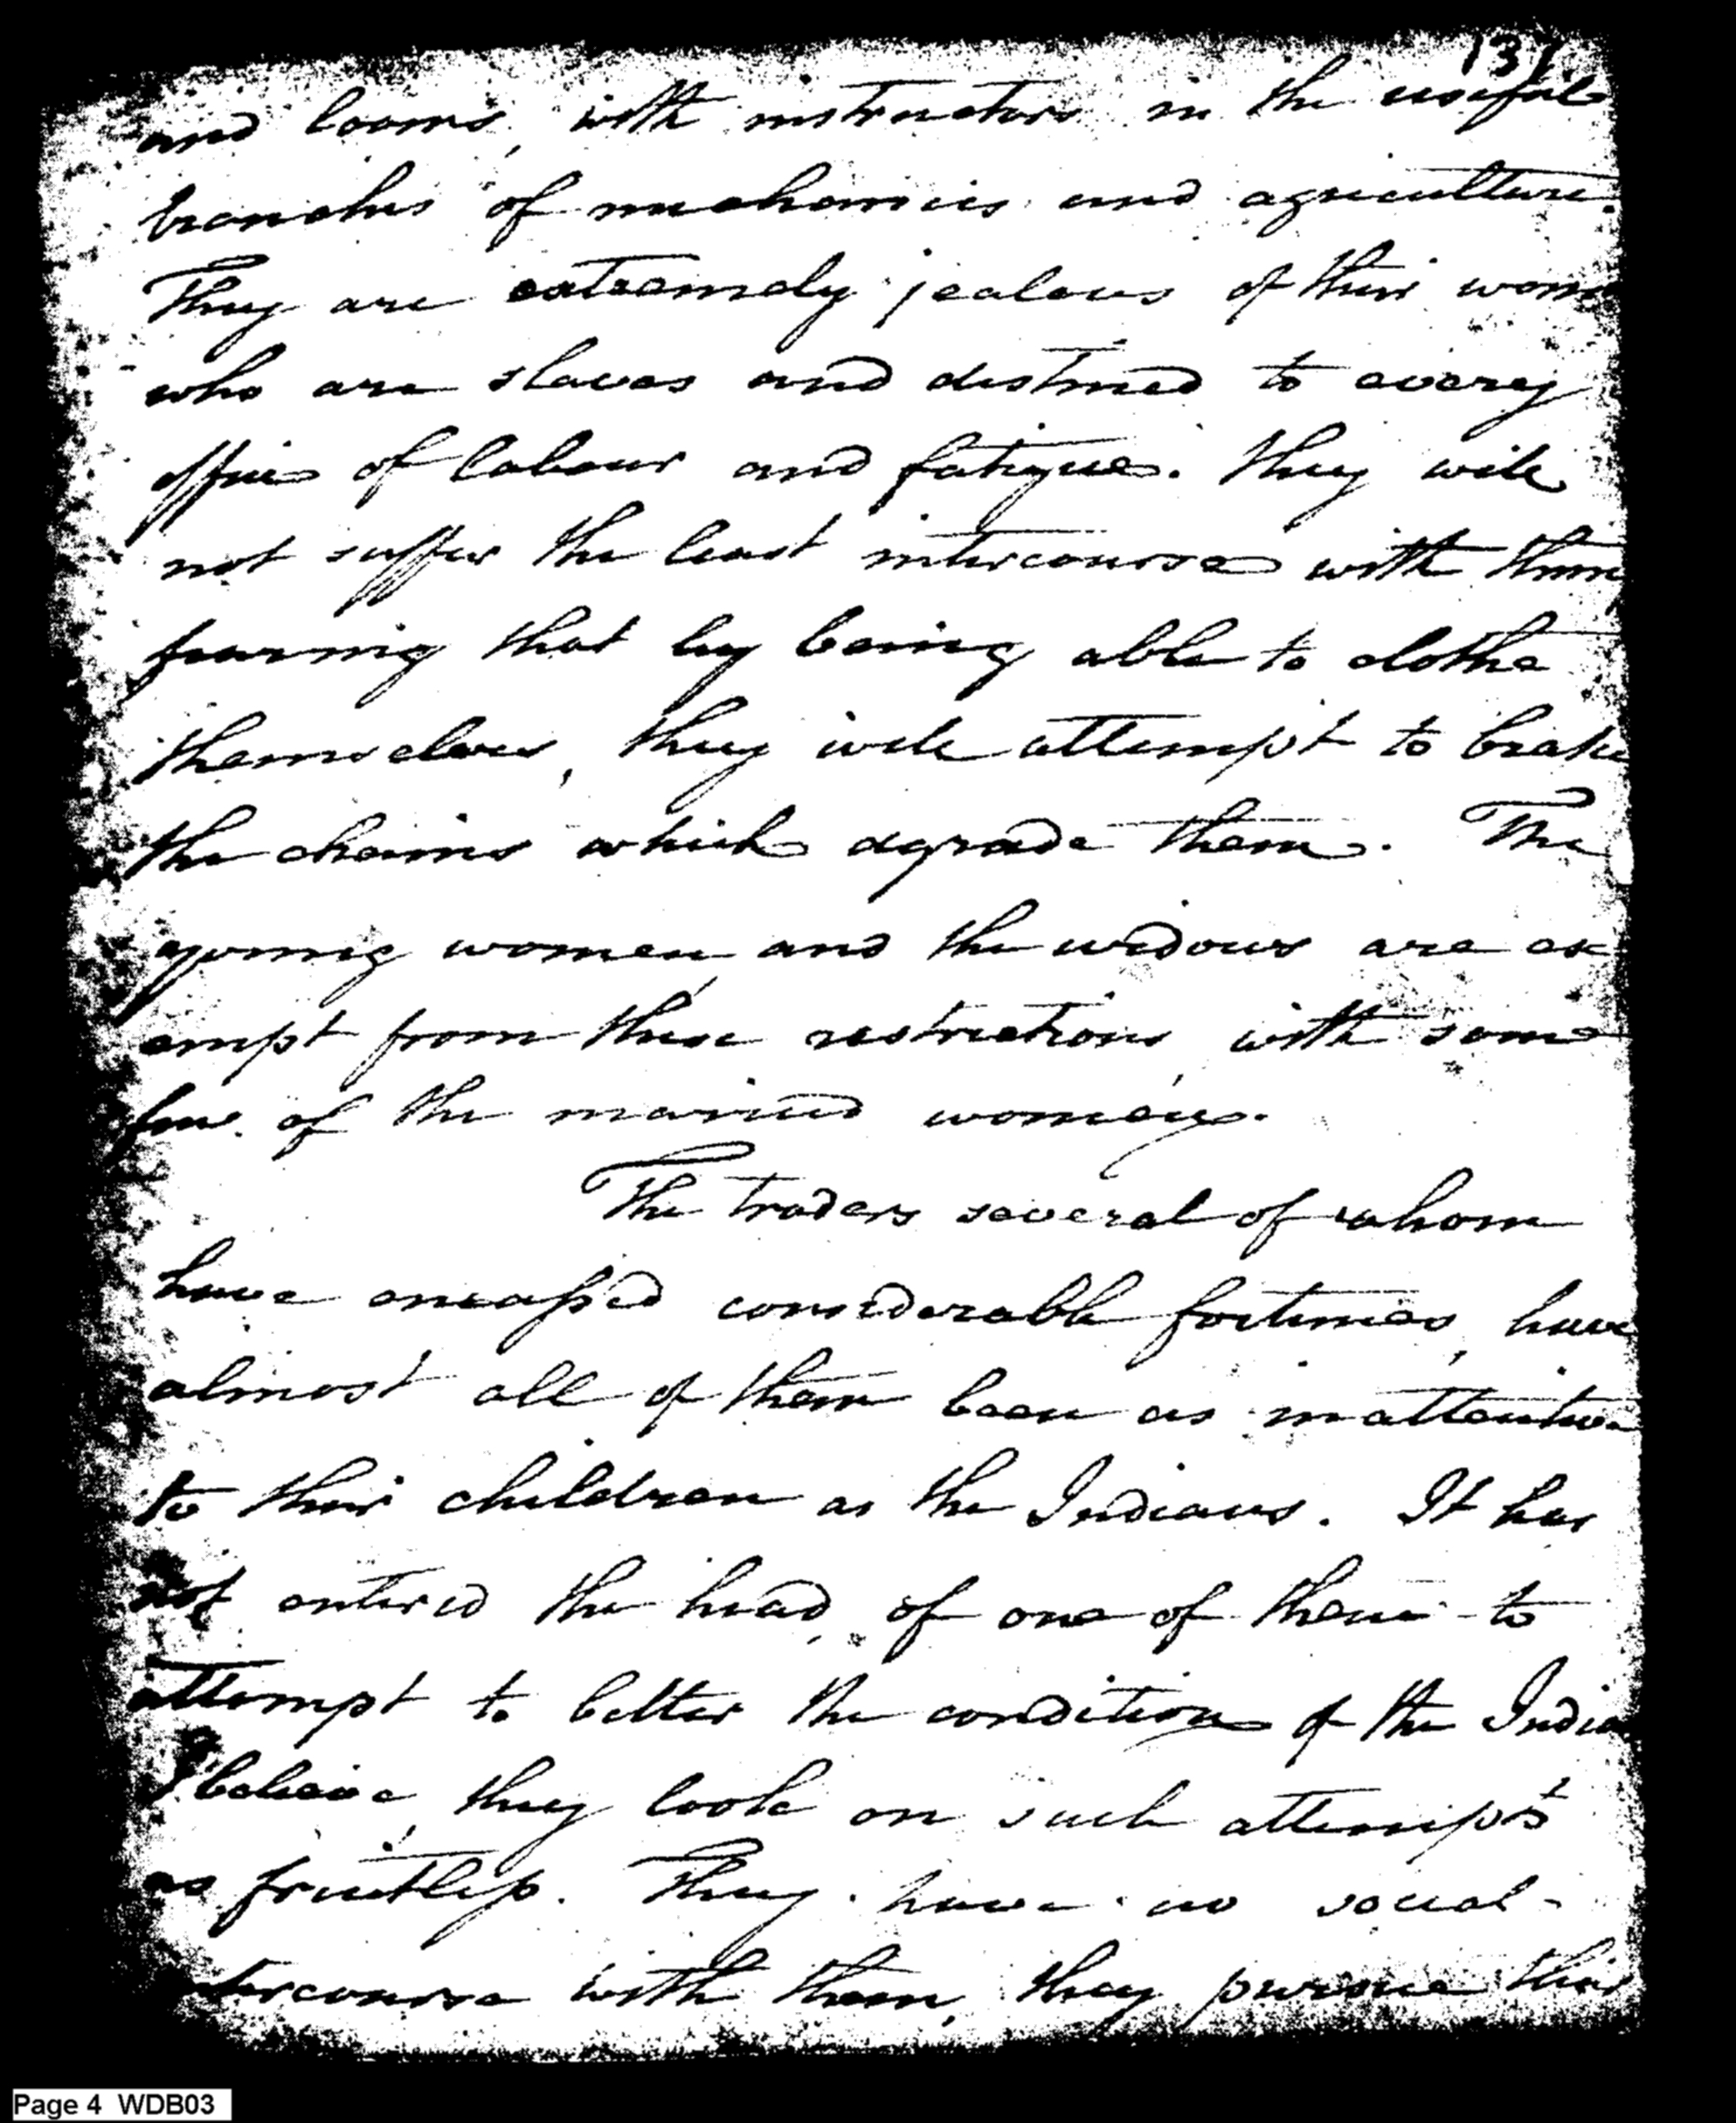 131.
and looms, with instructors in the useful
branches of mechanics and agriculture.
They are extremely jealous of their wom
who are slaves and destined to every
office of labour and fatigue. They will
not suffer the least intercourse with them,
fearing that by being able to clothe
themselves, they will attempt to brake
the chains which dgrade them. The
young women, and the widows are ex
empt from these restrictions, with some
few of the married women.
The traders several of whom
have amassed considerable fortunes, have
almost all of them been as inattentive
to their children as the Indians. It has
not entered the head, of one of them to
attempt to better the condition of the India
I believe, they look on such attempts
as fruitless. They have no social
ntercourse with them, they pursue their
Page 4 WDB03